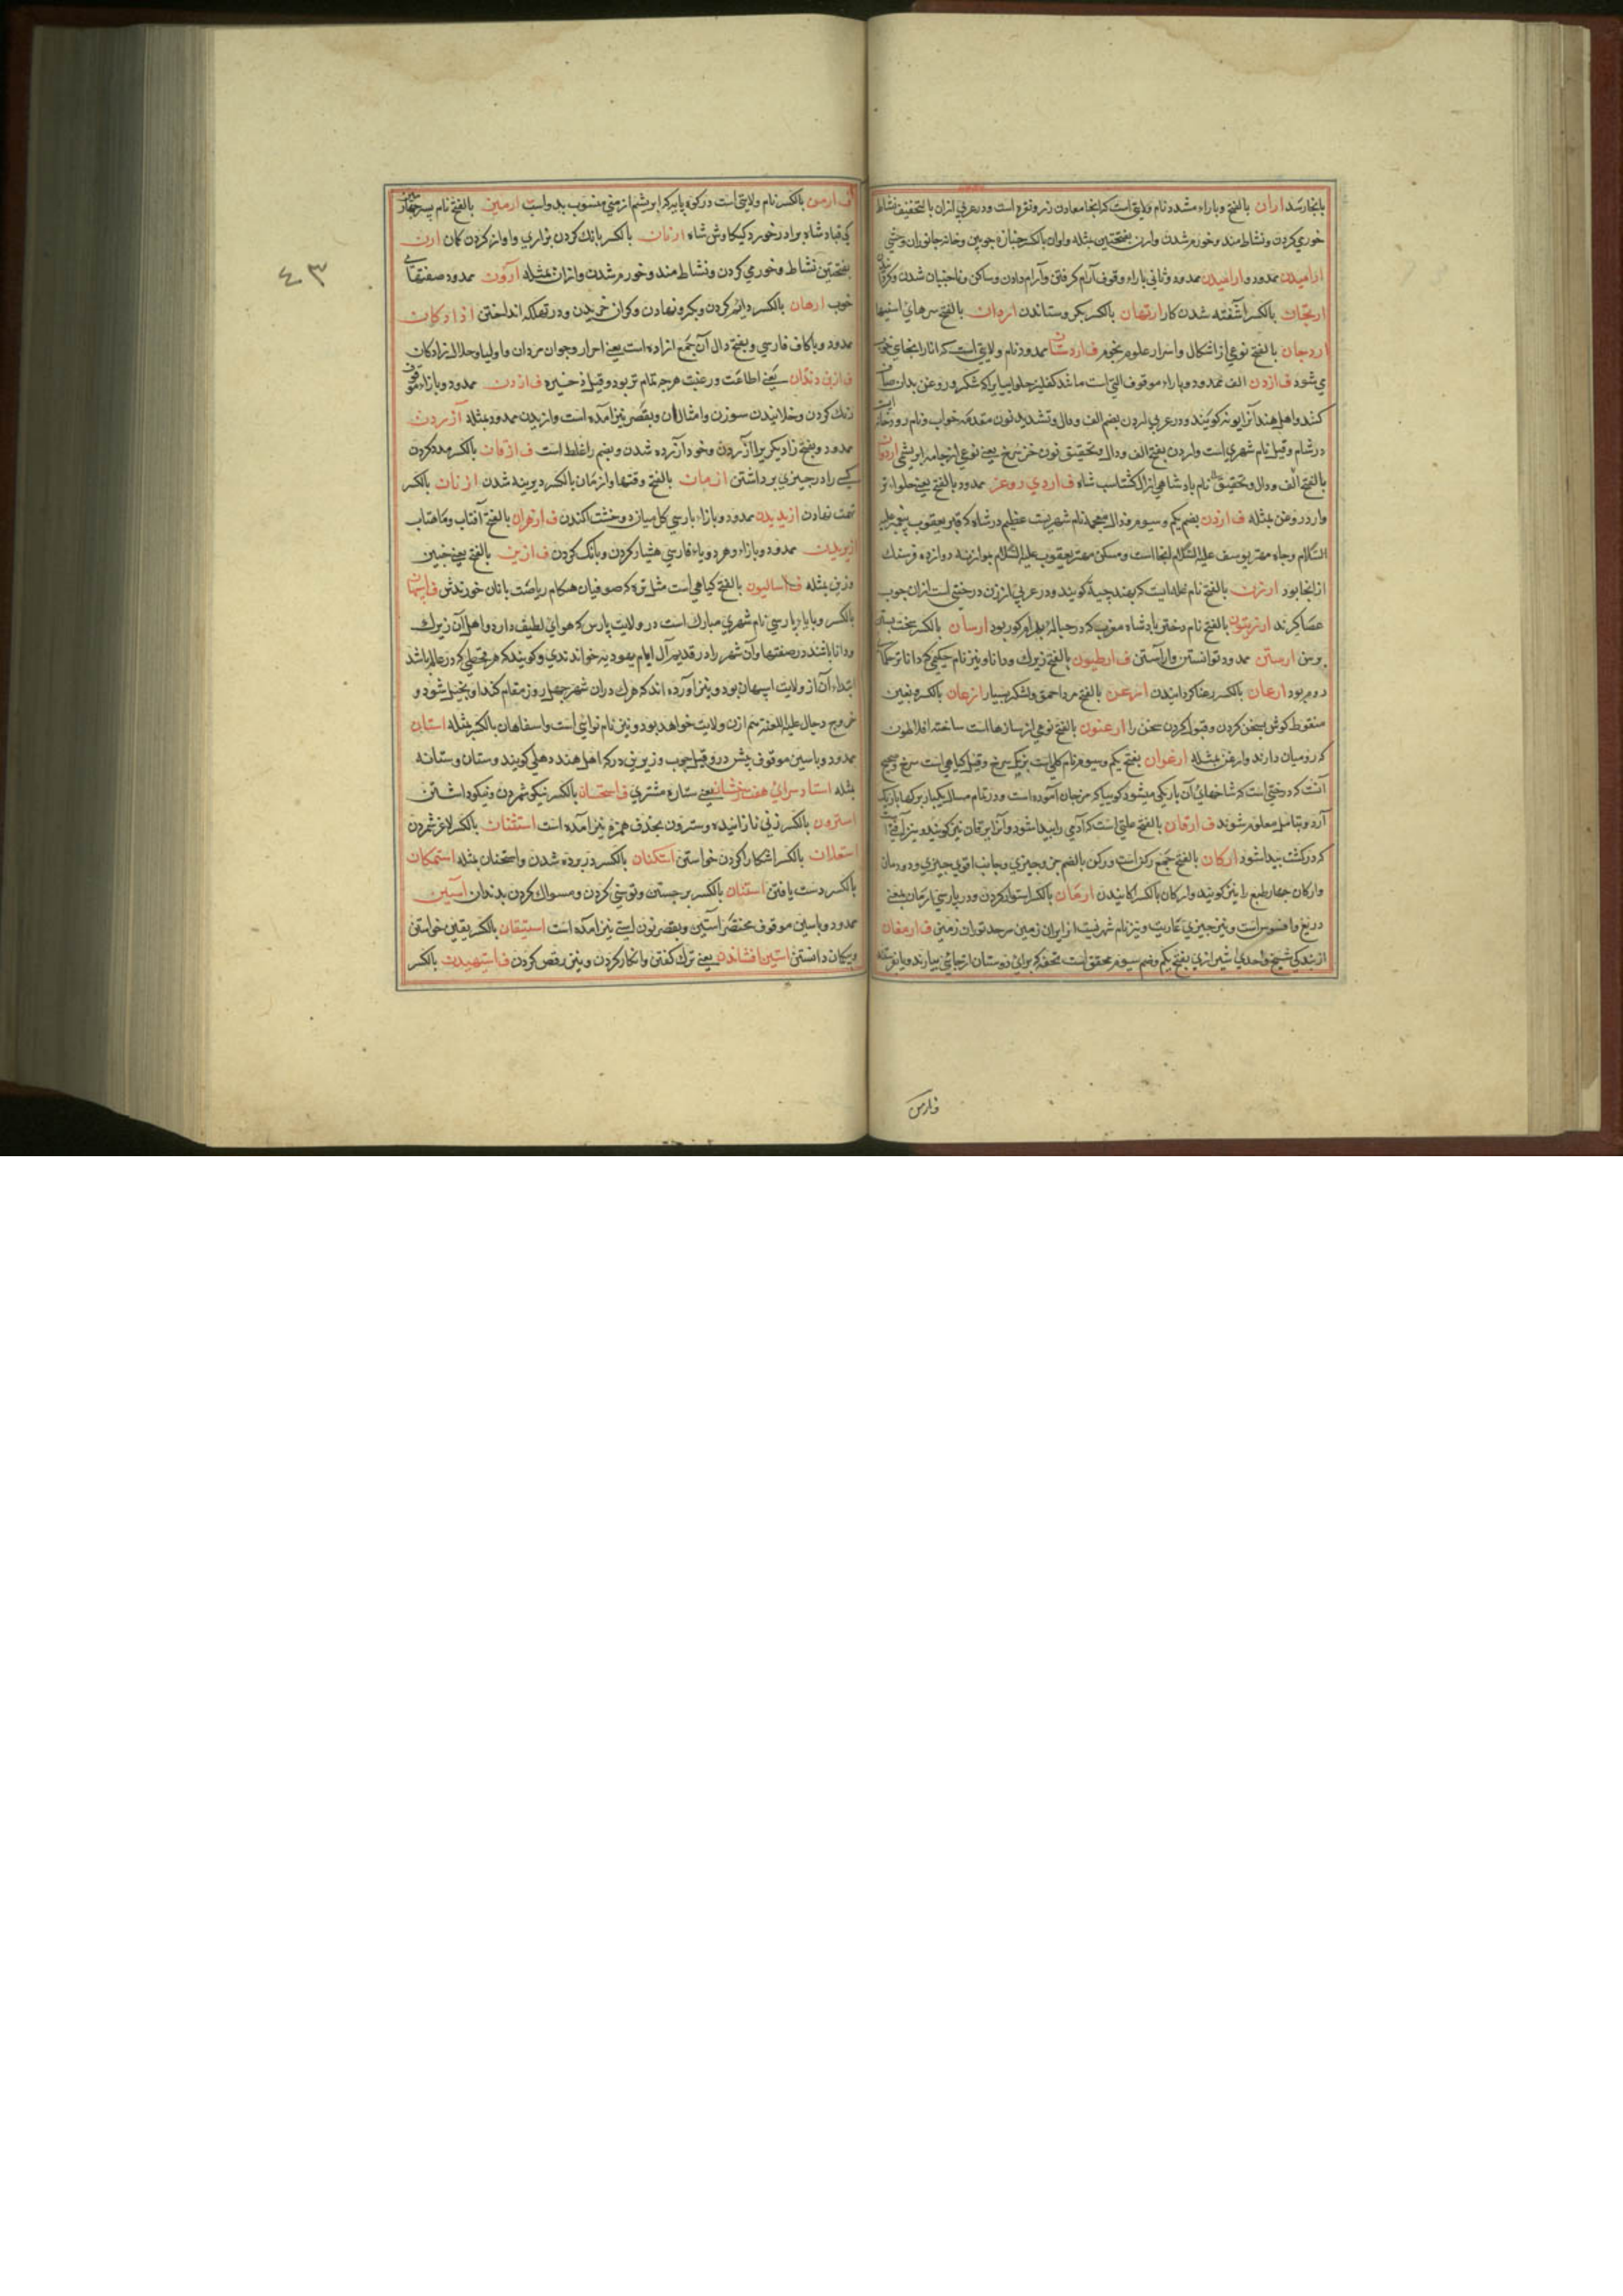 بانجا رسد اران بالفتح و با راء مشدد نام ولایتی است که انجا معادن زر و نقره است و در عربی اران بالتخفیف نشاط
خوری کردن و نشاط مند و خورم شدن وارن بفتحتین مثله واران بالکسر جنازه چوبین و خانه جانوران وحشی
ارامیدن ممدود و ارامیدن ممدود و ثانی با راء موقوف آرام گرفتن و آرام دادن و ساکن و ناجنبان شدن و کردن
ارتجان بالکسر آشفته شدن کار ارتهان بالکسر بگرو ستاندن اردان بالفتح سرهای استینها
اردجان بالفتح نوعی از اشکال و اسرار علوم نجوم ف اردستان ممدود نام ولایتی است که انار انجای خوب
می شود ف ازدن الف ممدود و با راء موقوف التی است مانند کفلیز حلوا بیایراکه شکر و روغن بدان صاف
کنند و اهل هند آنرا پونه کویند و در عربی اردن بضم الف و دال و تشدید نون مقدمه خواب و نام رودخانه ایست
در شام و قیل نام شهری است واردن بفتح الف و دال و تخفیف نون خز سرخ یعنی نوعی از جامه ابریشمی اردوان
بالفتح الف و دال و تخفیف نام بادشاهی از ال کشتاسب شاه ف اردی روغن ممدود بالفتح یعنی حلواء تر
وارد روغن مثله ف اردن بضم یکم و سیوم و ذال معجمه نام شهریست عظیم در شام که قبر یعقوب پیغمبر علیه
السّلام وچاه مهتر یوسف علیه السّلام انجااست و مسکن مهتر یعقوب علیه السّلام بوازنه دوازده فرسنک
از انجا بود ارزن بالفتح نام غله ایست که بهند چینه کویند و در عربی ارزن درختی است ازان چوب
عصا کیرند ارزیتون بالفتح نام دختر بادشاه مغرب که در حباله بهرام کور بود ارسان بالکسر سخت بستن
برسن ارستن ممدود توانستن و اراستن ف ارطیون بالفتح زیرک و دانا و نیز نام حکیمی که دانا ترحکماء
روم بود ارعان بالکسر رعنا کردانیدن ارعن بالفتح مرد احمق و لشکر بسیار ارغان بالکسر و بغین
منقوط کوش بسخن کردن و قبول کردن سخن را ارغنون بالفتح نوعی از سازهااست ساخته افلاطون
که رومیان دارند وارغن مثله ارغوان بفتح یکم و سیوم نام کلی است بزنگ سرخ و قیل کیاهی است سرخ و صحیح
آنست که درختی است که شاخهای آن باریک میشود کویا که مرجان آموده است و در تمام سال یکبار برکها باریک
آرد و بتامل معلوم شوند ف ارقان بالفتح علتی است که آدمی را پیدا شود و آنرا یرقان نیز کویند و نیز آفتیست
که در کشت پیدا شود ارکان بالفتح جمع رکن است و رکن بالضم جز و چیزی و جانب اقوی چیزی و دودمان
وارکان چهار طبع را نیز کویند وارکان بالکسر کابیدن ارمان بالکسر استوار کردن و در پارسی ارمان بمعنی
دریغ و افسوس است و نیز چیزی عاریت و نیز نام شهریست از ایران زمین سرحد توران زمین ف ارمغان
از بندکی شیخ واحدی شیرازی بفتح یکم و ضم سیوم محقق است تحفه که برای دوستان از جائی بیارند و یا بفرستند
و ارمن
ف ارمن بالکسر نام ولایتی است در کوه پایه که ابریشم ارمنی منسوب بدواست ارمین بالفتح نام پسر چهارمین
کی قباد شاه برادر خورد کیکاوش شاه ارنان بالکسر بانک کردن بزاری و اواز کردن کمان ارن
بفتحتین نشاط و خوری کردن و نشاط مند و خورم شدن واران مثله آرون ممدود صفتهای
خوب ارهان بالکسر دایم کردن و بکرو نهادن و کران خریدن و در تهلکه انداختن ازادکان
ممدود و باکاف فارسی و بفتح دال آن جمع ازاده است یعنی احرار و جوان مردان و اولیا و حلال زادکان
ف ازبن دندان یعنی اطاعت و رغبت هرچه تمام تر بود و قیل ذخیره ف ازدن ممدود و بازاء موقوف
رنک کردن و خلانیدن سوزن و امثال ان و بقصر نیز آمده است وازیدن ممدود مثله آزردن
ممدود و بفتح زا دیکری را آزردن و خود آزرده شدن و بضم را غلط است ف ازفان بالکسر مدد کردن
کسی را در چیزی برداشتن ازمان بالفتح وقتها وازمان بالکسر دیرینه شدن ازنان بالکسر
تهمت نهادن ازیدن ممدود و بازاء پارسی کل میان دو خشت اکندن ف ازهران بالفتح آفتاب و ماهتاب
ازیریدن ممدود و بازاء و هر دو یاء فارسی هشیار کردن و بانک کردن ف ازین بالفتح یعنی چنین
وزین مثله ف اسالیون بالفتح کیاهی است مثل تره که صوفیان هنکام ریاضت بانان خورندش ف اسپهان
بالکسر و باباء پارسی نام شهری مبارک است در ولایت پارس که هوای لطیف دارد و اهل آن زیرک
و دانا باشند در صفتها وآن شهر را در قدیم آل ایام یهودیه خواندندی و کویند که هر بخیلی که در عالم باشد
ابتداء آن از ولایت اسپهان بود و نیز اورده اند که هرک دران شهر چهل روز مقام کند او بخیل شود و
خروج دجال علیه اللعنة هم ازان ولایت خواهد بود و نیز نام نوایی است واسفاهان بالکسر مثله استان
ممدود و باسین موقوف پیش در و قیل چوب زیرین در که اهل هند دهلی کویند وستان وستانه
مثله استاد سرای هفت خشان یعنی ستاره مشتری ف استحسان بالکسر نیکو شمردن و نیکو داشتن
استرون بالکسر زنی نازانیده وسترون بحذف همزه نیز آمده است استثنان بالکسر لاغر شمردن
استعلان بالکسر اشکارا کردن خواستن استکنان بالکسر در پرده شدن واستخنان مثله استمکان
بالکسر دست یافتن استنان بالکسر برجستن و توسنی کردن و مسواک کردن بدندان آستین
ممدود و باسین موقوف مختصر آستین و بقصر نون استی نیز آمده است استیقان بالکسر یقین خواستن
و بیکمان دانستن استین افشاندن یعنی ترک کفتن و انکار کردن و نیز رقص کردن ف استهیدن بالکسر
٤٣